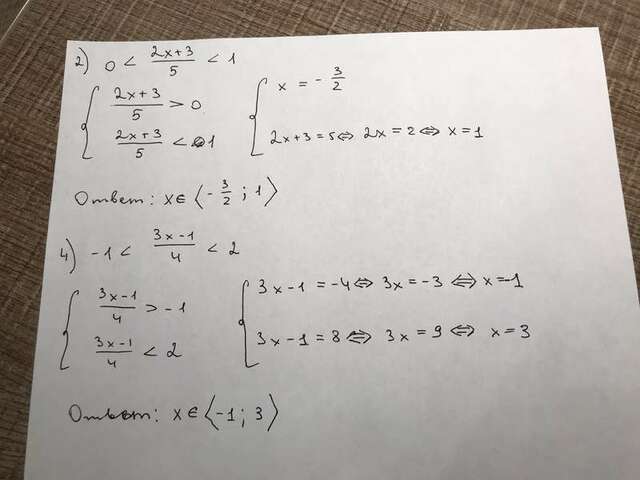 2) 0 < (2x+3)/5 < 1
{ (2x+3)/5 > 0 { x = -3/2
(2x+3)/5 < 1 2x+3 = 5 ⇔ 2x = 2 ⇔ x = 1
Ответ: x ∈ ⟨-3/2 ; 1⟩
4) -1 < (3x-1)/4 < 2
{ (3x-1)/4 > -1 { 3x-1 = -4 ⇔ 3x = -3 ⇔ x = -1
(3x-1)/4 < 2 3x-1 = 8 ⇔ 3x = 9 ⇔ x = 3
Ответ: x ∈ ⟨-1 ; 3⟩